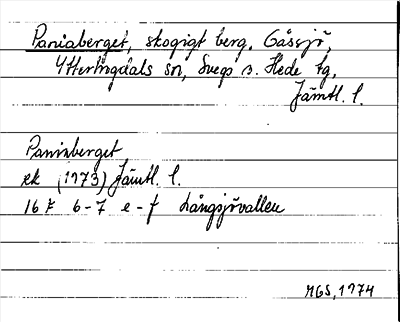 Paniaberget, skogigt berg. Gåssjö,
Ytterhogdals sn, Svegs o. Hede tg,
Jämtl. l.
Paninberget
rk (1973) Jämtl. l.
16 F 6-7 e-f Långsjövallen
MGS, 1974